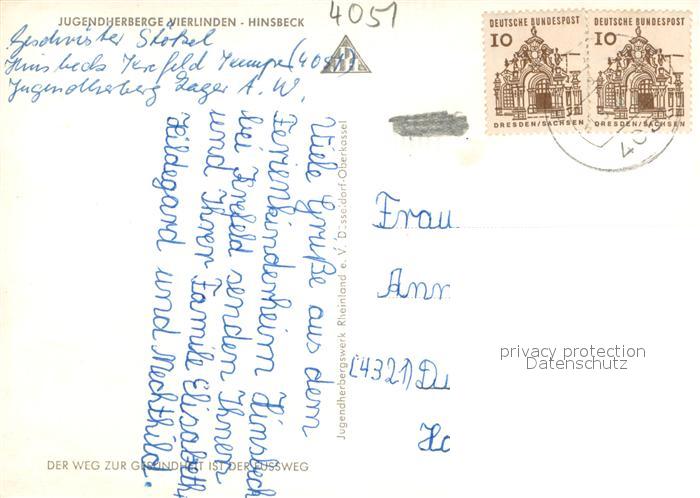 4051
JUGENDHERBERGE VIERLINDEN - HINSBECK
Geschwister
Hinsbeck Krefeld (4051)
Jugendherberg Lager A. W.
DEUTSCHE BUNDESPOST
10
DRESDEN/SACHSEN
DEUTSCHE BUNDESPOST
10
DRESDEN/SACHSEN
Viele Grüße aus dem
Ferienkinderheim Hinsbeck
bei Krefeld senden Ihnen
und Ihrer Familie Elisabeth,
Hildegard und Mechthild.
Jugendherbergswerk Rheinland e. V. Düsseldorf-Oberkassel
Frau
Ann
(4321) Du
Ha
privacy protection
Datenschutz
DER WEG ZUR GESUNDHEIT IST DER FUSSWEG